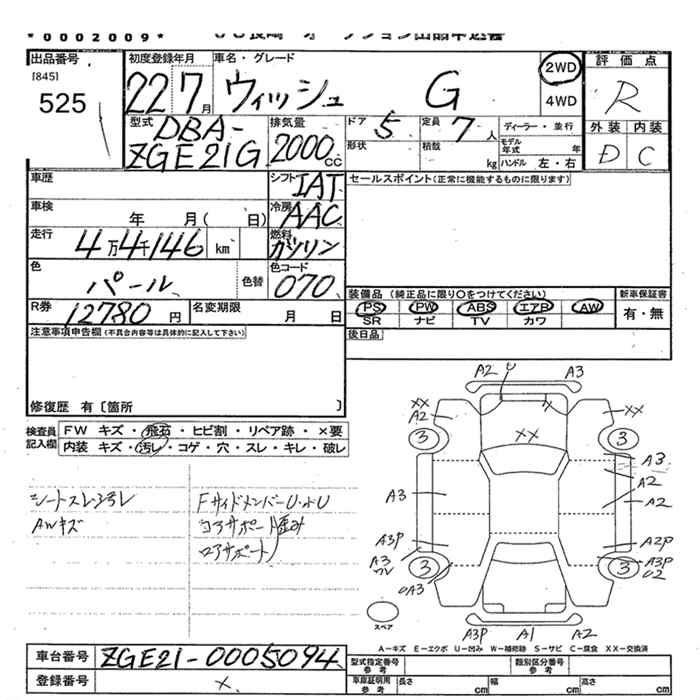 *0002009*
出品番号 初度登録年月 車名・グレード 評価点
[845]
525
22 7月 ウィッシュ G 2WD R
4WD
型式 排気量 ドア 定員 ディーラー・並行 外装 内装
DBA- 5 7人
ZGE21G 2000cc 形状 積哉 kg モデル年式 年 D C
ハンドル 左・右
車歴 シフト IAT セールスポイント(正常に機能するものに限ります)
車検 年 月( 日) 冷房 AAC
走行 4万4千146 km 燃料 ガソリン
色 パール 色替 色コード 070
装備品 (純正品に限り○をつけてください) 新車保証書
R券 12780円 名変期限 月 日 PS PW ABS エアB AW 有・無
SR ナビ TV カワ
注意事項申告欄(不具合内容等は具体的に記入して下さい) 後日品
修復歴 有〔箇所 〕
検査員記入欄 FW キズ・飛石・ヒビ割・リペア跡・×要
内装 キズ・汚レ・コゲ・穴・スレ・キレ・破レ
シートスレ・汚レ FサイドメンバーU・小U
AWキズ コアサポート歪み
ロアサポート
A2 U A3
XX A2 XX XX
3 3
A3 A3 A2 A2
A3P A2P
A3 ワレ 3 3 A3P U2
UA3
スペア
A3P A1 A2
A-キズ E-エクボ U-凹み W-補修跡 S-サビ C-腐食 XX-交換済
車台番号 ZGE21-0005094
型式指定番号 参考 類別区分番号 参考
登録番号 ×
車庫証明用 参考 長さ cm 幅 cm 高さ cm